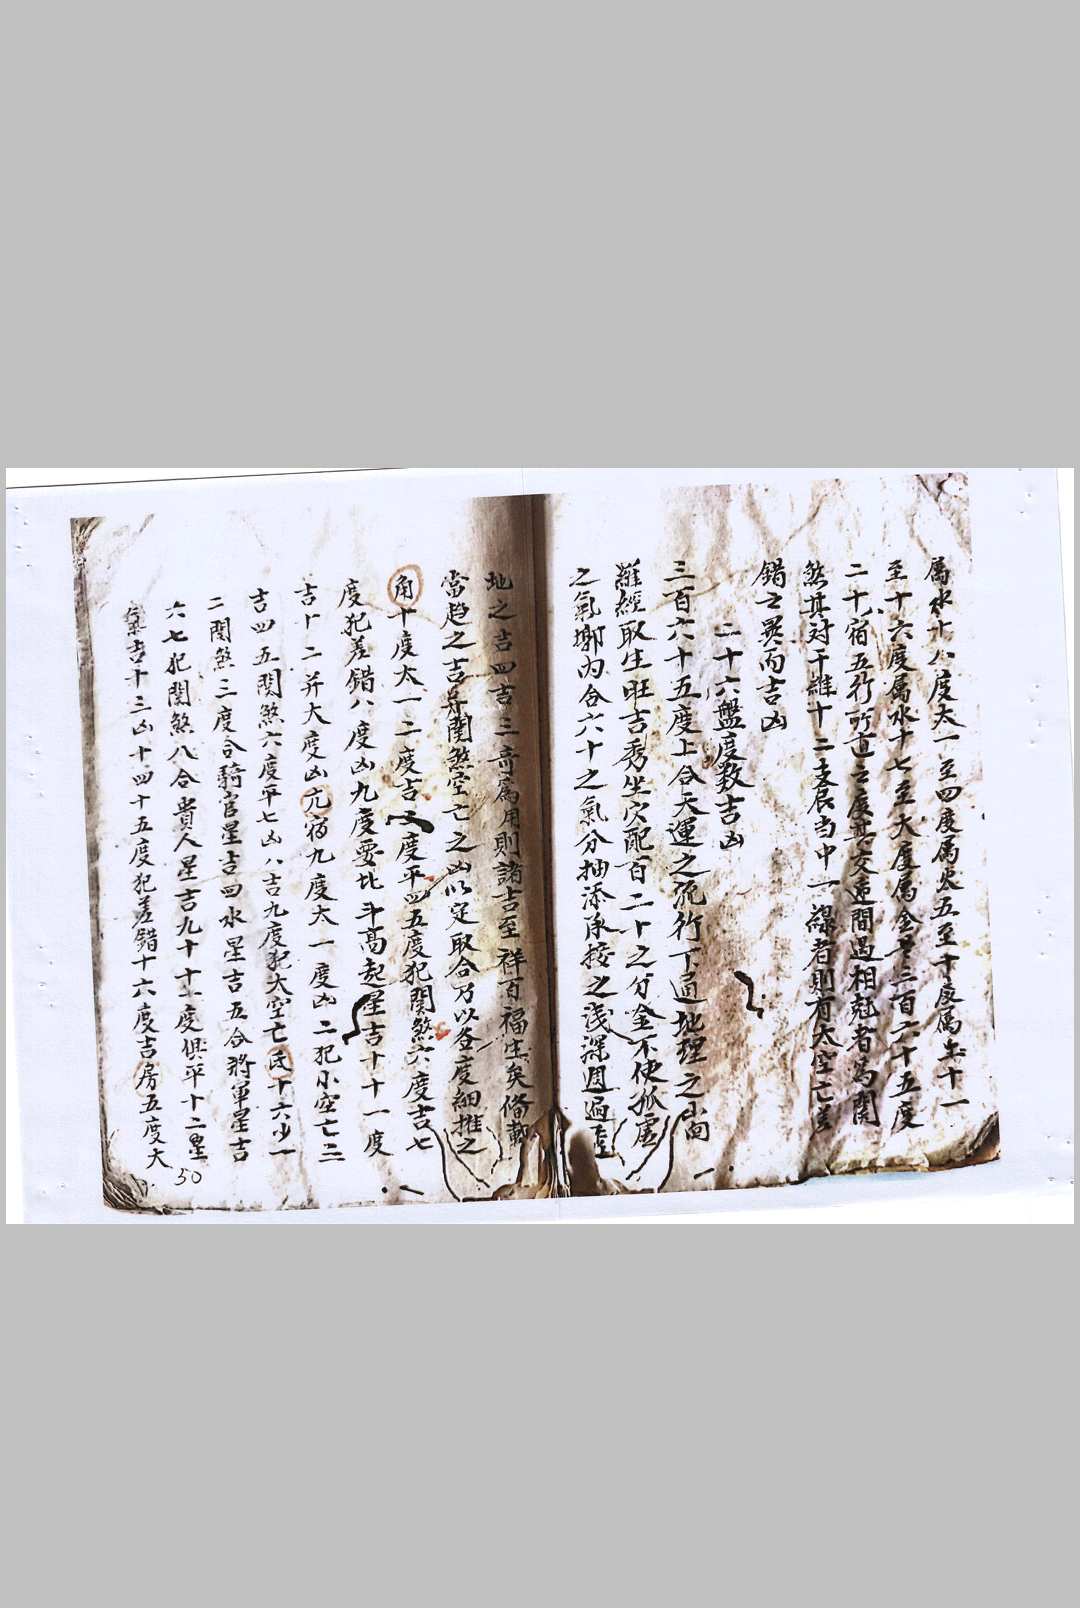 属水十八度太一至四度属火五至十度属土十一
至十六度属水十七至大度属金是三百六十五度
二十八宿五行所直之度其交速間過相尅者為関
煞其对干維十二支辰当中一線者則有大空亡差
錯之異而吉凶
二十六盤度数吉凶
三百六十五度上合天運之流行下通地理之
羅經取生旺吉秀坐穴配百二十之分金不使孤虛
之氣挪内合六十之氣分抽添承接之淺深週過
地之吉四吉三奇為用則諸吉至祥百福生矣俻載
當趋之吉并関煞空亡之凶以定取合乃以各度細推之
角十度太一二度吉 度平四五度犯関煞六度吉七
度犯差錯八度凶九度要比斗高起星吉十十一度
吉十二并大度凶亢宿九度太一度凶二犯小空亡三
吉四五関煞六度平七凶八吉九度犯大空亡氐十六少一
二関煞三度合騎官星吉四水星吉五合將軍星吉
六七犯関煞八合貴人星吉九十十一度俱平十二
吉十三凶十四十五度犯差錯十六度吉房五度大
50